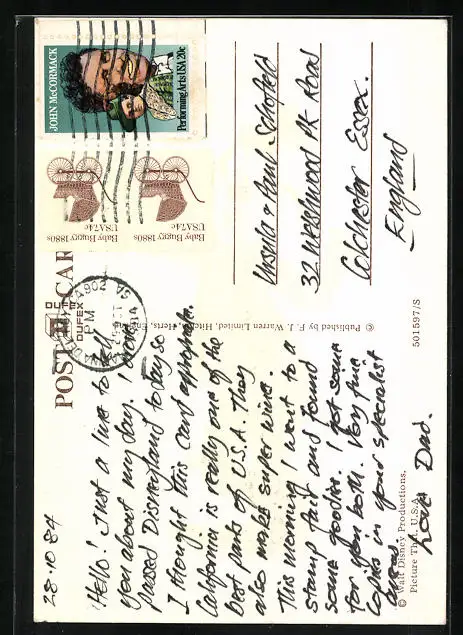 28.10.84
Hello! Just a line to tell
you about my day. I
passed Disneyland today so
I thought this card appropriate.
California is really one of the
best parts of U.S.A. They
also make super wine.
This morning I went to a
stamp fair and found
some goodies. I got some
for you both. Very fine
copies in your specialist
areas.
Love Dad.
POST CAR
DUFEX
© Walt Disney Productions.
Picture That, U.S.A.
© Published by F. J. Warren Limited, Hitchin, Herts, England
501597/S
JOHN McCORMACK
Performing Arts USA 20c
Baby Buggy 1880s
USA 7.4c
Baby Buggy 1880s
USA 7.4c
PM
Ursula & Paul Schofield
32 Westwood Pk Road
Colchester Essex.
England